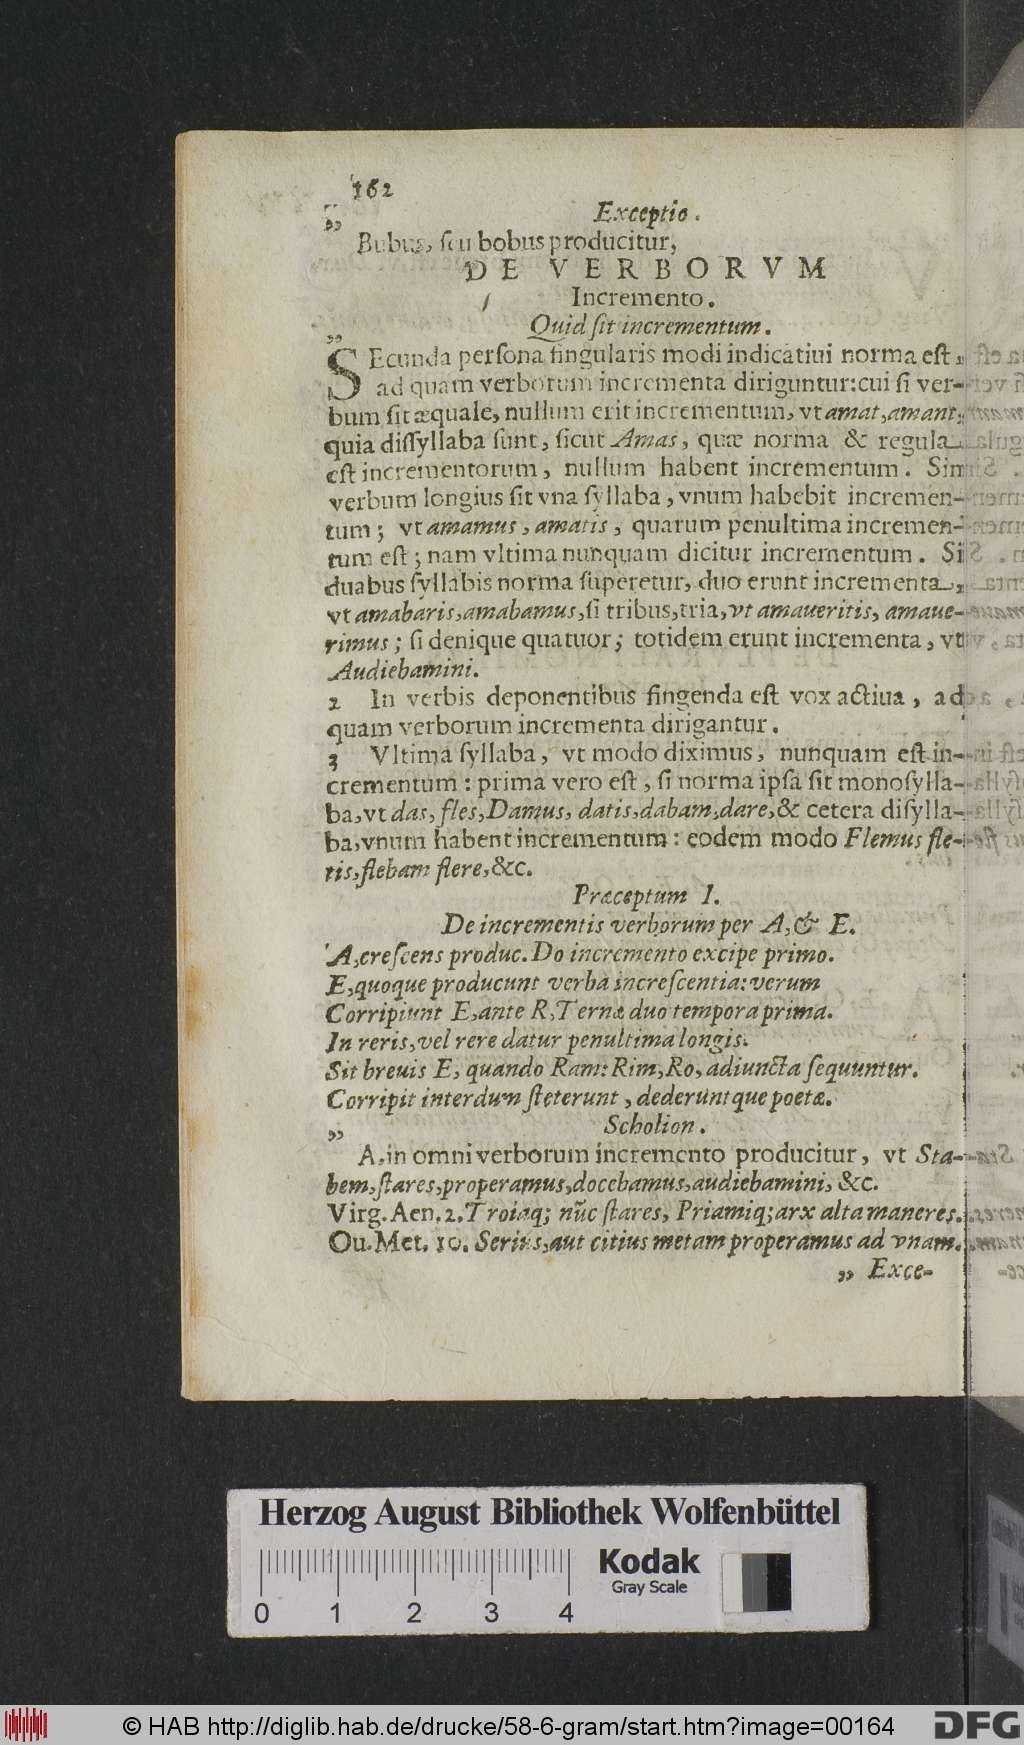 162
Exceptio.
„
Bubus, seu bobus producitur,
DE VERBORVM
Incremento.
Quid sit incrementum.
„
SEcunda persona singularis modi indicatiui norma est,
ad quam verborum incrementa diriguntur: cui si ver-
bum sit æquale, nullum erit incrementum, vt amat, amant;
quia dissyllaba sunt, sicut Amas, quæ norma & regula
est incrementorum, nullum habent incrementum. Sin
verbum longius sit vna syllaba, vnum habebit incremen-
tum; vt amamus, amatis, quarum penultima incremen-
tum est; nam vltima nunquam dicitur incrementum. Si
duabus syllabis norma superetur, duo erunt incrementa,
vt amabaris, amabamus, si tribus, tria, vt amaueritis, amaue-
rimus; si denique quatuor; totidem erunt incrementa, vt
Audiebamini.
2 In verbis deponentibus fingenda est vox actiua, ad
quam verborum incrementa dirigantur.
3 Vltima syllaba, vt modo diximus, nunquam est in-
crementum: prima vero est, si norma ipsa sit monosylla-
ba, vt das, fles, Damus, datis, dabam, dare, & cetera disylla-
ba, vnum habent incrementum: eodem modo Flemus fle-
tis, flebam flere, &c.
Præceptum I.
De incrementis verborum per A, & E.
A, crescens produc. Do incremento excipe primo.
E, quoque producunt verba increscentia: verum
Corripiunt E, ante R, Ternæ duo tempora prima.
In reris, vel rere datur penultima longis.
Sit breuis E, quando Ram: Rim, Ro, adiuncta sequuntur.
Corripit interdum steterunt, dederuntque poetæ.
„
Scholion.
A, in omni verborum incremento producitur, vt Sta-
bem, stares, properamus, docebamus, audiebamini, &c.
Virg. Aen. 2. Troiaq; nūc stares, Priamiq; arx alta maneres.
Ou. Met. 10. Serius, aut citius metam properamus ad vnam.
„ Exce-
Herzog August Bibliothek Wolfenbüttel
Kodak
Gray Scale
0 1 2 3 4
© HAB http://diglib.hab.de/drucke/58-6-gram/start.htm?image=00164
DFG